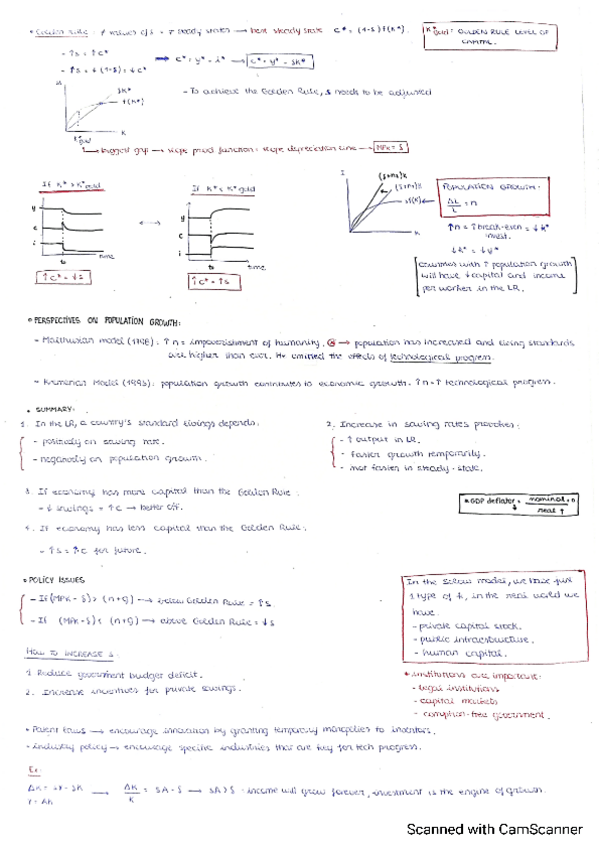 • Golden rule: ≠ values of s = ≠ steady states → best steady state C* = (1-s) f(K*).
K*gold: GOLDEN RULE LEVEL OF CAPITAL.
- ↑s = ↑C*
- ↑s = ↓(1-s) = ↓C*
→ C* = y* - i* → C* = y* - δK*
- To achieve the Golden Rule, s needs to be adjusted
δK*
f(K*)
K
K*gold
biggest gap → slope prod function = slope depreciation line → MPK = δ
If K* > K*gold
y
c
i
t0
time
↑C* = ↓s
If K* < K*gold
y
c
i
t0
time
↑C* = ↑s
I
(δ+n)K
sf(K)
K
POPULATION GROWTH:
ΔL/L = n
↑n = ↑break-even invest. = ↓K*
↓K* = ↓y*
countries with ↑ population growth
will have ↓ capital and income
per worker in the LR.
• PERSPECTIVES ON POPULATION GROWTH:
- Malthusian model (1798): ↑n = impoverishment of humanity. → population has increased and living standards
are higher than ever. He omitted the effects of technological progress.
- Kremerian Model (1993): population growth contributes to economic growth. ↑n = ↑ technological progress.
• SUMMARY:
1. In the LR, a country's standard livings depends:
- positively on saving rate.
- negatively on population growth.
2. Increase in saving rates provokes:
- ↑ output in LR.
- faster growth temporarily.
- not faster in steady-state.
3. If economy has more capital than the Golden Rule:
- ↓ savings = ↑C → better off.
* GDP deflator = nominal / real ↑
4. If economy has less capital than the Golden Rule:
- ↑s = ↑C for future.
• POLICY ISSUES
- If (MPK - δ) > (n+g) → below Golden Rule = ↑s
- If (MPK - δ) < (n+g) → above Golden Rule = ↓s
In the Solow model, we have just
1 type of K, in the real world we
have:
- private capital stock.
- public infrastructure.
- human capital.
HOW TO INCREASE s:
1. Reduce government budget deficit.
2. Increase incentives for private savings.
* institutions are important:
- legal institutions
- capital markets
- corruption-free government.
• Patent laws → encourage innovation by granting temporary monopolies to inventors.
- industry policy → encourage specific industries that are key for tech progress.
Ex:
ΔK = sY - δK → ΔK/K = sA - δ → sA > δ: income will grow forever, investment is the engine of growth.
Y = AK
Scanned with CamScanner